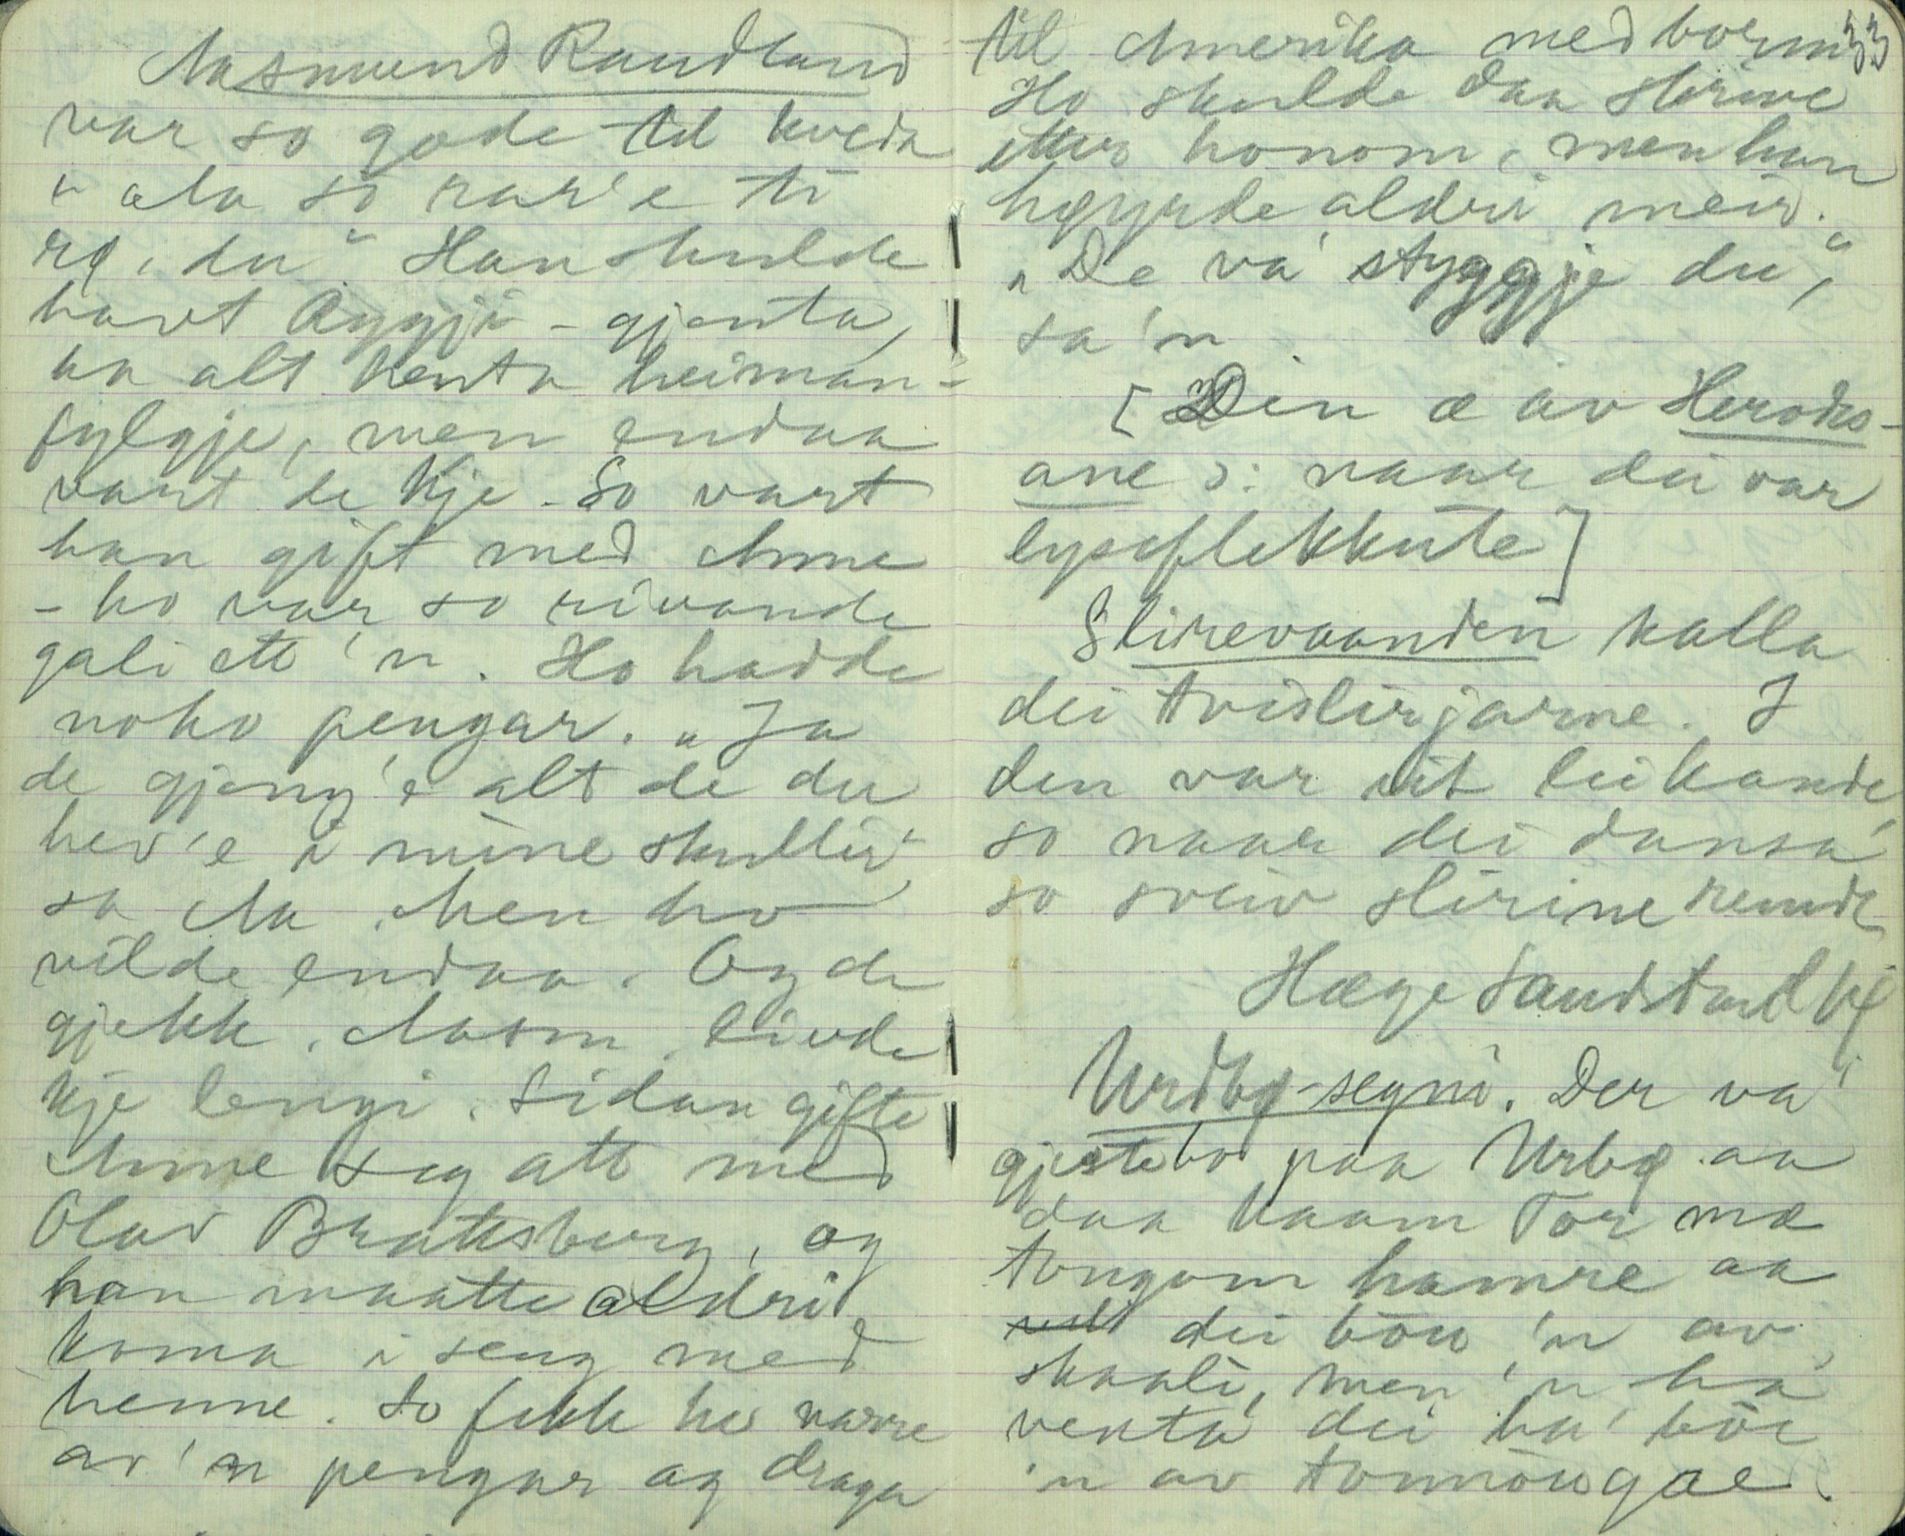 Aasmund Raudland
var so gode til kveda
"ala so rar'e ti
rø, du" Han skulde
havt Byggji-gjenta,
ha alt henta heiman-
fylgje, men endaa
vart de kje. So vart
han gift med Anne
- ho var so rivande
gali ett 'n. Ho hadde
noko pengar. "Ja
de gjeng'e alt de du
hev'e i mine skuller",
sa Aa. Men ho
vilde endaa. Og de
gjekk. Aasm. livde
kje lengi. Sidan gifte
Anne seg att med
Olav Brattsberg, og
han maatte aldri
koma i seng med
henne. So fekk ho narre
av 'n pengar og draga
33
til Amerika med borni
Ho skulde daa skrive
etter honom, men han
høyrde aldri meir.
"De va' styggje du",
sa 'n
[Den æ av Herodes-
ane ɔ: naar dei var
lyseflekkute]
Slirevaanden kalla
dei tvislirjarne. I
den var eit leikande,
so naar dei dansa'
so sveiv slirine rundt
Hæge Sandstad Kf
Urdbø-segni. Der va'
gjestebo paa Urbø aa
daa kaam Tor mæ
tongom hamre aa
dei bou 'n av
skaali, men 'n ha'
venta' dei ha' böe
'n av tonnougae.